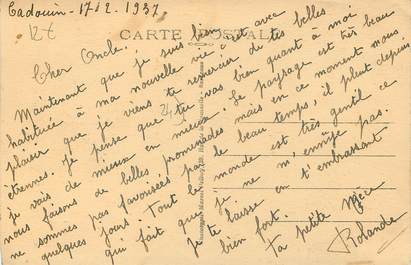 Cadouin - 17/2. 1937.
CARTE POSTALE
Cher Oncle.
Maintenant que je suis bien
habituée à ma nouvelle vie, c'est avec
plaisir que je viens te remercier de tes belles
étrennes. Je pense que tu vas bien quant à moi
je vais de mieux en mieux. Le paysage est très beau
nous faisons de belles promenades mais en ce moment nous
ne sommes pas favorisées par le beau temps, il pleut depuis
quelques jours. Tout le monde est très gentil ce
qui fait que je ne m'ennuie pas.
Je te laisse en t'embrassant
bien fort.
Ta petite Nièce
Rolande